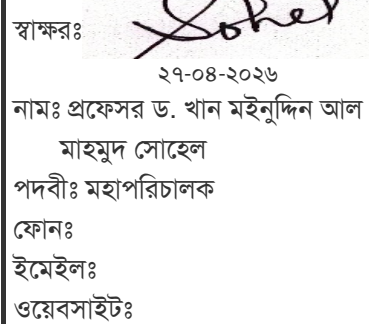 স্বাক্ষরঃ Sohel
২৭-০৪-২০২৬
নামঃ প্রফেসর ড. খান মইনুদ্দিন আল
মাহমুদ সোহেল
পদবীঃ মহাপরিচালক
ফোনঃ
ইমেইলঃ
ওয়েবসাইটঃ